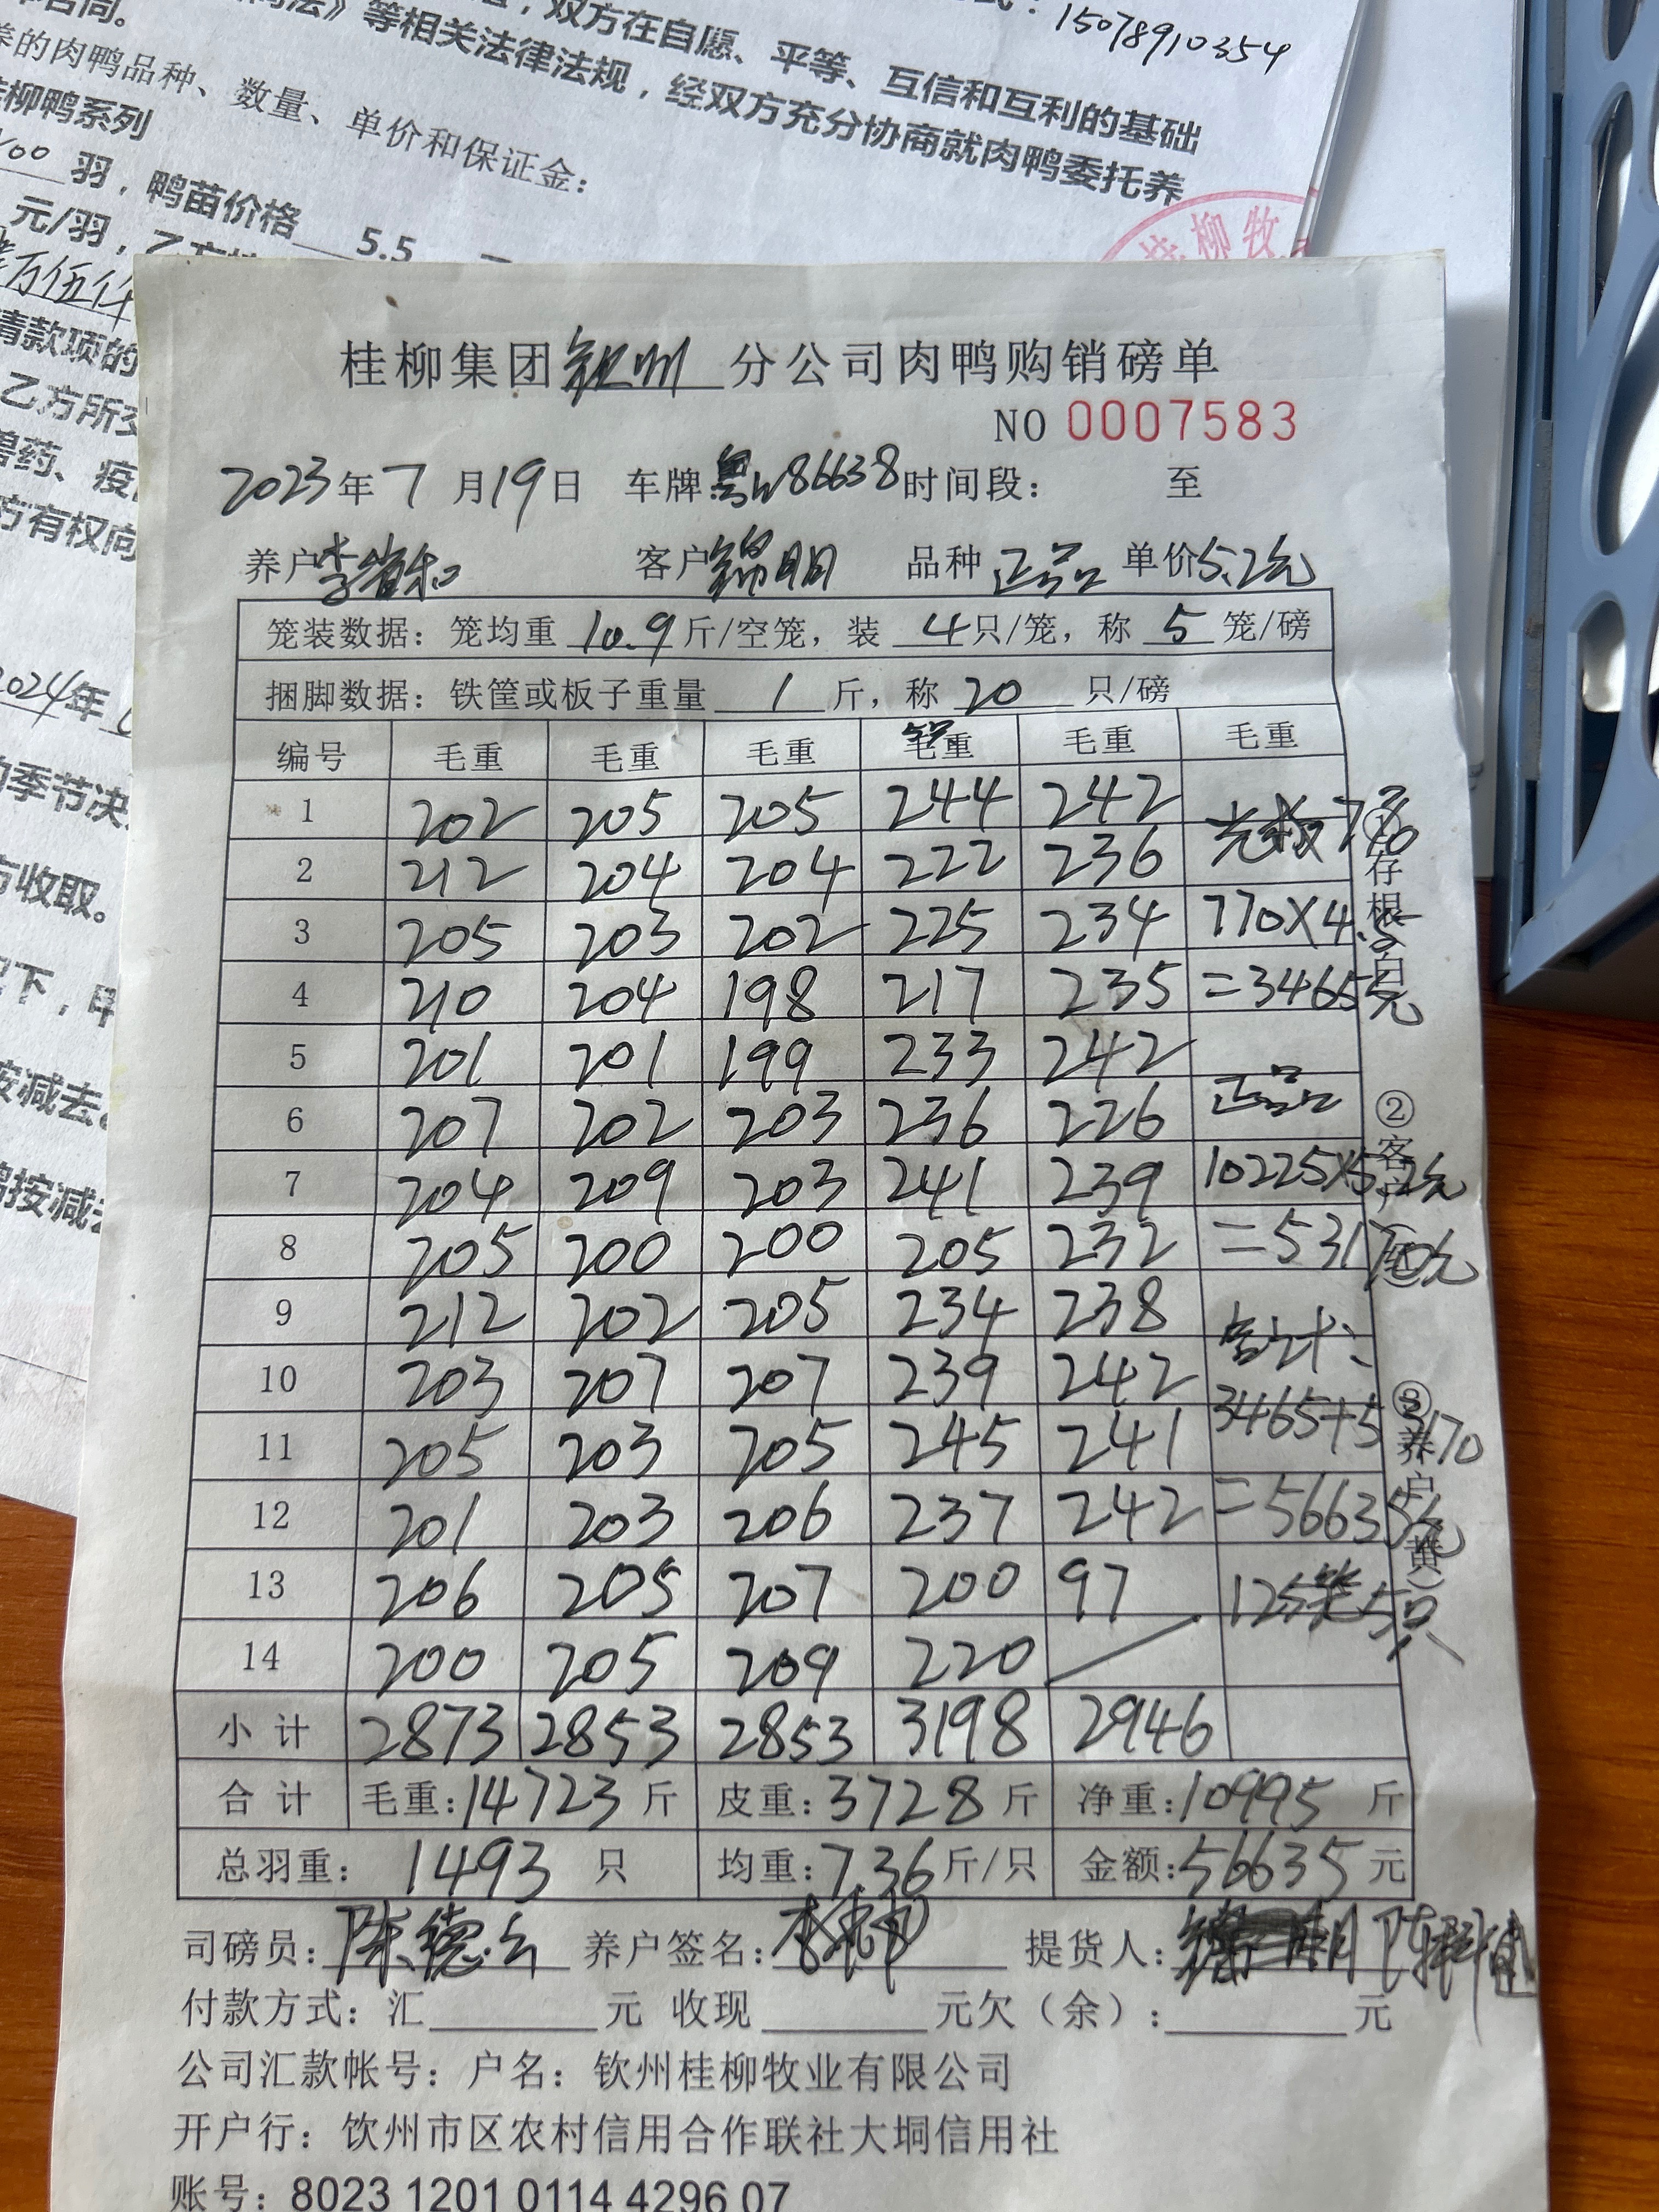 15078910354
双方在自愿、平等、互信和互利的基础
》等相关法律法规，经双方充分协商就肉鸭委托养
养的肉鸭品种、数量、单价和保证金：
柳鸭系列
羽，鸭苗价格 5.5
元/羽，乙方
万伍仟
请款项的
乙方所交
兽药、疫
方有权向
2024年
的季节决
方收取。
按减去。
按减去
柳牧
桂柳集团钦州分公司肉鸭购销磅单
NO 0007583
2023年7月19日 车牌粤 86638 时间段： 至
养户李 和 客户锦明 品种 正品 单价5.2元
笼装数据：笼均重 10.9 斤/空笼，装 4只/笼，称 5 笼/磅
捆脚数据：铁筐或板子重量 1 斤，称 20 只/磅
编号 毛重 毛重 毛重 毛重 毛重 毛重
1 202 205 205 244 242
2 212 204 204 222 236
3 205 203 202 225 234 770X4.5
4 210 204 198 217 235 =3465元
5 201 201 199 233 242
6 207 202 203 236 226 正品
7 204 209 203 241 239 10225X5.2元
8 205 200 200 205 232 =53170元
9 212 202 205 234 238 合计：
10 203 207 207 239 242
11 205 203 205 245 241 3465+53170
12 201 203 206 237 242 =56635元
13 206 205 207 200 97 125笼5只
14 200 205 209 220
小计 2873 2853 2853 3198 2946
合计 毛重：14723 斤 皮重：3728 斤 净重：10995 斤
总羽重：1493 只 均重：7.36斤/只 金额：56635元
存根 白
②客户
③养户 黄）
司磅员：陈德 养户签名： 提货人：
付款方式：汇 元 收现 元欠（余）： 元
公司汇款帐号：户名：钦州桂柳牧业有限公司
开户行：钦州市区农村信用合作联社大垌信用社
账号：8023 1201 0114 4296 07